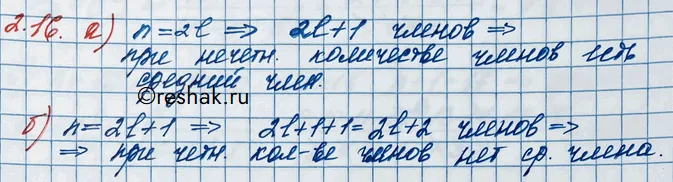 2.16. а) n = 2l ⇒ 2l+1 членов ⇒
при нечетн. количестве членов есть
средний член.
©reshak.ru
б) n = 2l+1 ⇒ 2l+1+1 = 2l+2 членов ⇒
⇒ при четн. кол-ве членов нет ср. члена.